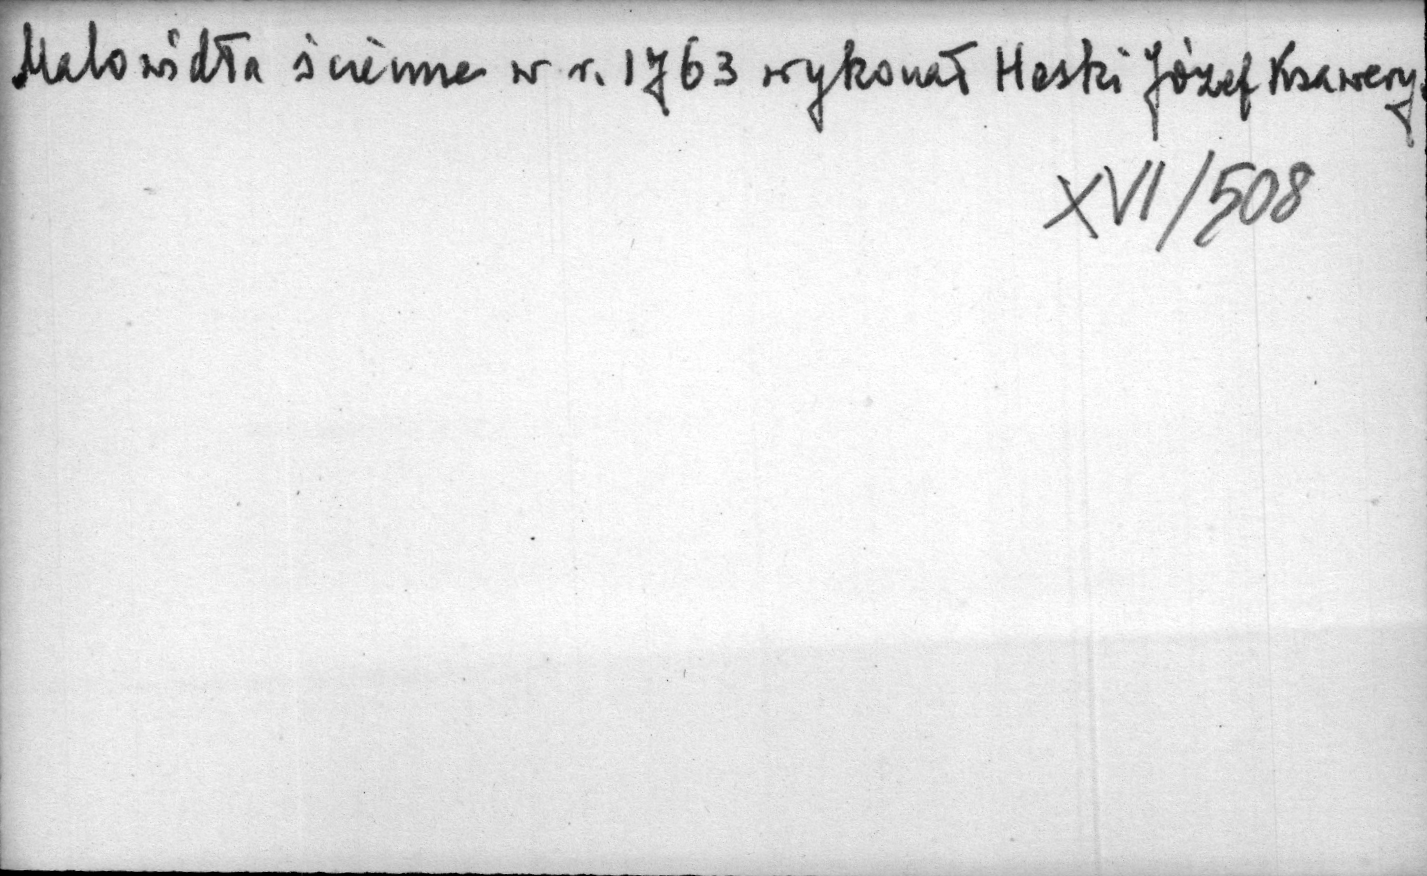 Malowidła ścienne w r. 1763 wykonał Heski Józef Ksawery.
XVI/508